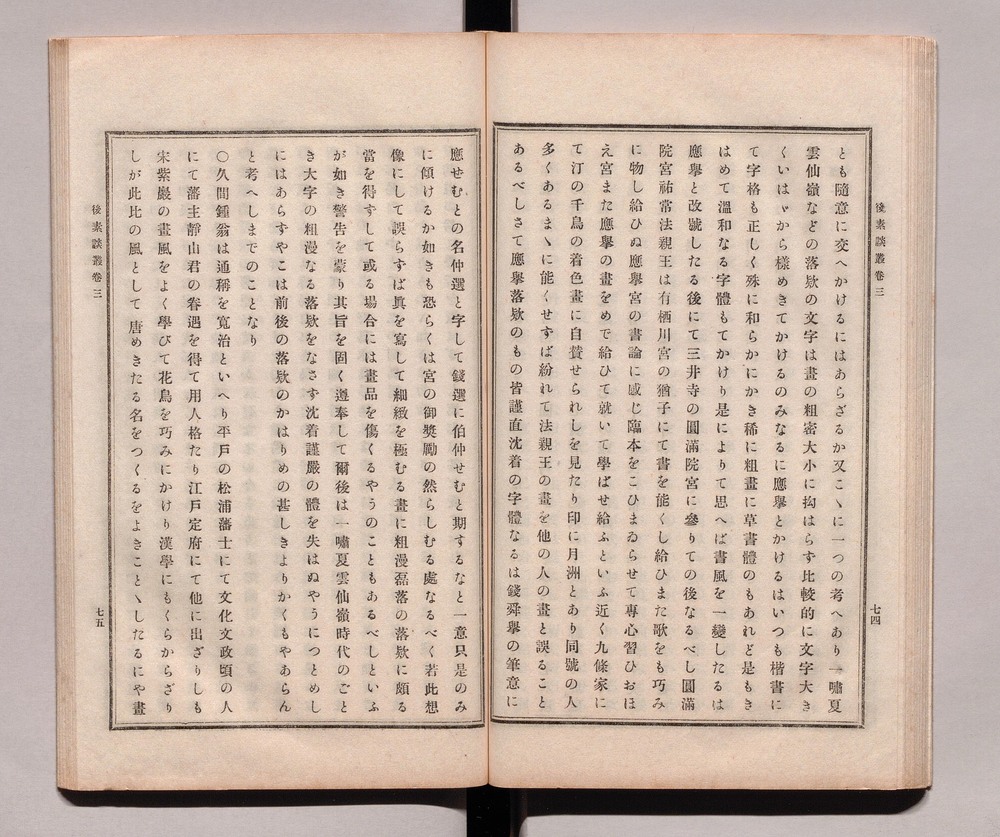 後素談叢卷三
七四
とも隨意に交へかけるにはあらざるか又こヽに一つの考へあり一嘯夏
雲仙嶺などの落欵の文字は畫の粗密大小に拘はらす比較的に文字大き
くいはヾから樣めきてかけるのみなるに應擧とかけるはいつも楷書に
て字格も正しく殊に和らかにかき稀に粗畫に草書體のもあれど是もき
はめて溫和なる字體もてかけり是によりて思へば書風を一變したるは
應擧と改號したる後にて三井寺の圓滿院宮に參りての後なるべし圓滿
院宮祐常法親王は有栖川宮の猶子にて書を能くし給ひまた歌をも巧み
に物し給ひぬ應擧宮の書論に感じ臨本をこひまゐらせて專心習ひおほ
え宮また應擧の畫をめで給ひて就いて學ばせ給ふといふ近く九條家に
て汀の千鳥の着色畫に自贊せられしを見たり印に月洲とあり同號の人
多くあるまヽに能くせすば紛れて法親王の畫を他の人の畫と誤ること
あるべしさて應擧落欵のもの皆謹直沈着の字體なるは錢舜擧の筆意に
應せむとの名仲選と字して錢選に伯仲せむと期するなと一意只是のみ
に傾けるか如きも恐らくは宮の御奬勵の然らしむる處なるべく若此想
像にして誤らずば眞を寫して細緻を極むる畫に粗漫磊落の落欵に頗る
當を得すして或る場合には畫品を傷くるやうのこともあるべしといふ
が如き警告を蒙り其旨を固く遵奉して爾後は一嘯夏雲仙嶺時代のごと
き大字の粗漫なる落欵をなさず沈着謹嚴の體を失はぬやうにつとめし
にはあらすやこは前後の落欵のかはりめの甚しきよりかくもやあらん
と考へしまでのことなり
〇久間鍾翁は通稱を寬治といへり平戸の松浦藩士にて文化文政頃の人
にて藩主靜山君の眷遇を得て用人格たり江戸定府にて他に出ざりしも
宋紫巖の畫風をよく學びて花鳥を巧みにかけり漢學にもくらからざり
しが此比の風として唐めきたる名をつくるをよきことヽしたるにや畫
後素談叢卷三
七五